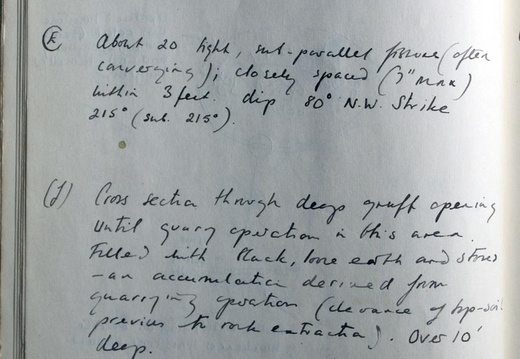 (K) About 20 tight, sub-parallel fissures (often
converging); closely spaced (3" max)
within 3 feet. dip 80° N.W. Strike
215° (sub. 215°).
(J) Cross section through deep gruff opening
until quarry operation in this area.
Filled with black, loose earth and stones
- an accumulation derived from
quarrying operation (clearance of top-soil
previous to rock extraction). Over 10'
deep.